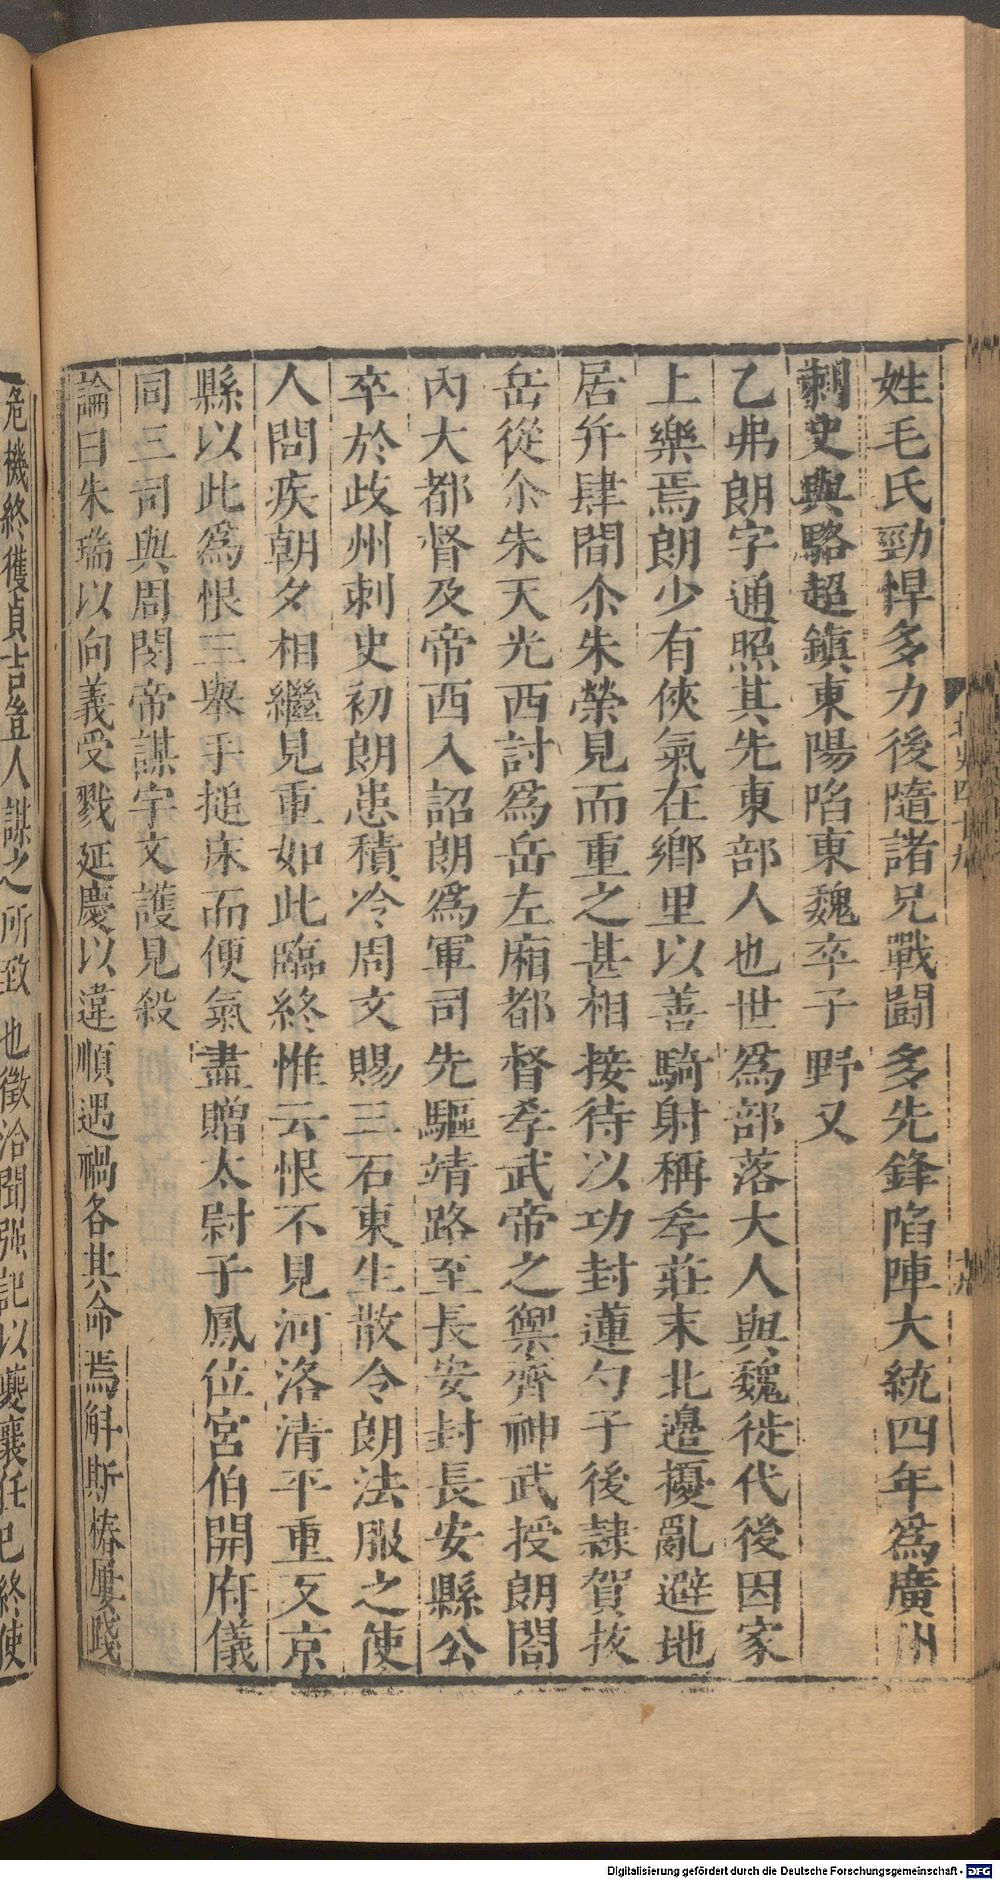 姓毛氏勁悍多力後隨諸兄戰鬪多先鋒陷陣大統四年爲廣州
刺史與駱超鎮東陽陷東魏卒子野叉
乙弗朗字通照其先東部人也世爲部落大人與魏徙代後因家
上樂焉朗少有俠氣在鄉里以善騎射稱孝莊末北邊擾亂避地
居幷肆間尒朱榮見而重之甚相接待以功封蓮勺子後隷賀抜
岳從尒朱天光西討爲岳左廂都督孝武帝之禦齊神武授朗閤
內大都督及帝西入詔朗爲軍司先驅靖路至長安封長安縣公
卒於歧州刺史初朗患積冷周文賜三石東生散令朗法服之使
人問疾朝夕相繼見重如此臨終惟云恨不見河洛清平重反京
縣以此爲恨三舉手搥床而便氣盡贈太尉子鳳位宮伯開府儀
同三司與周閔帝謀宇文護見殺
論曰朱瑞以向義受戮延慶以違順遇禍各其命焉斛斯椿屢踐
危機終獲貞吉豈人謀之所致也徵洽聞强記以夔襄任巳終使
北史四十九
十九
Digitalisierung gefördert durch die Deutsche Forschungsgemeinschaft - DFG